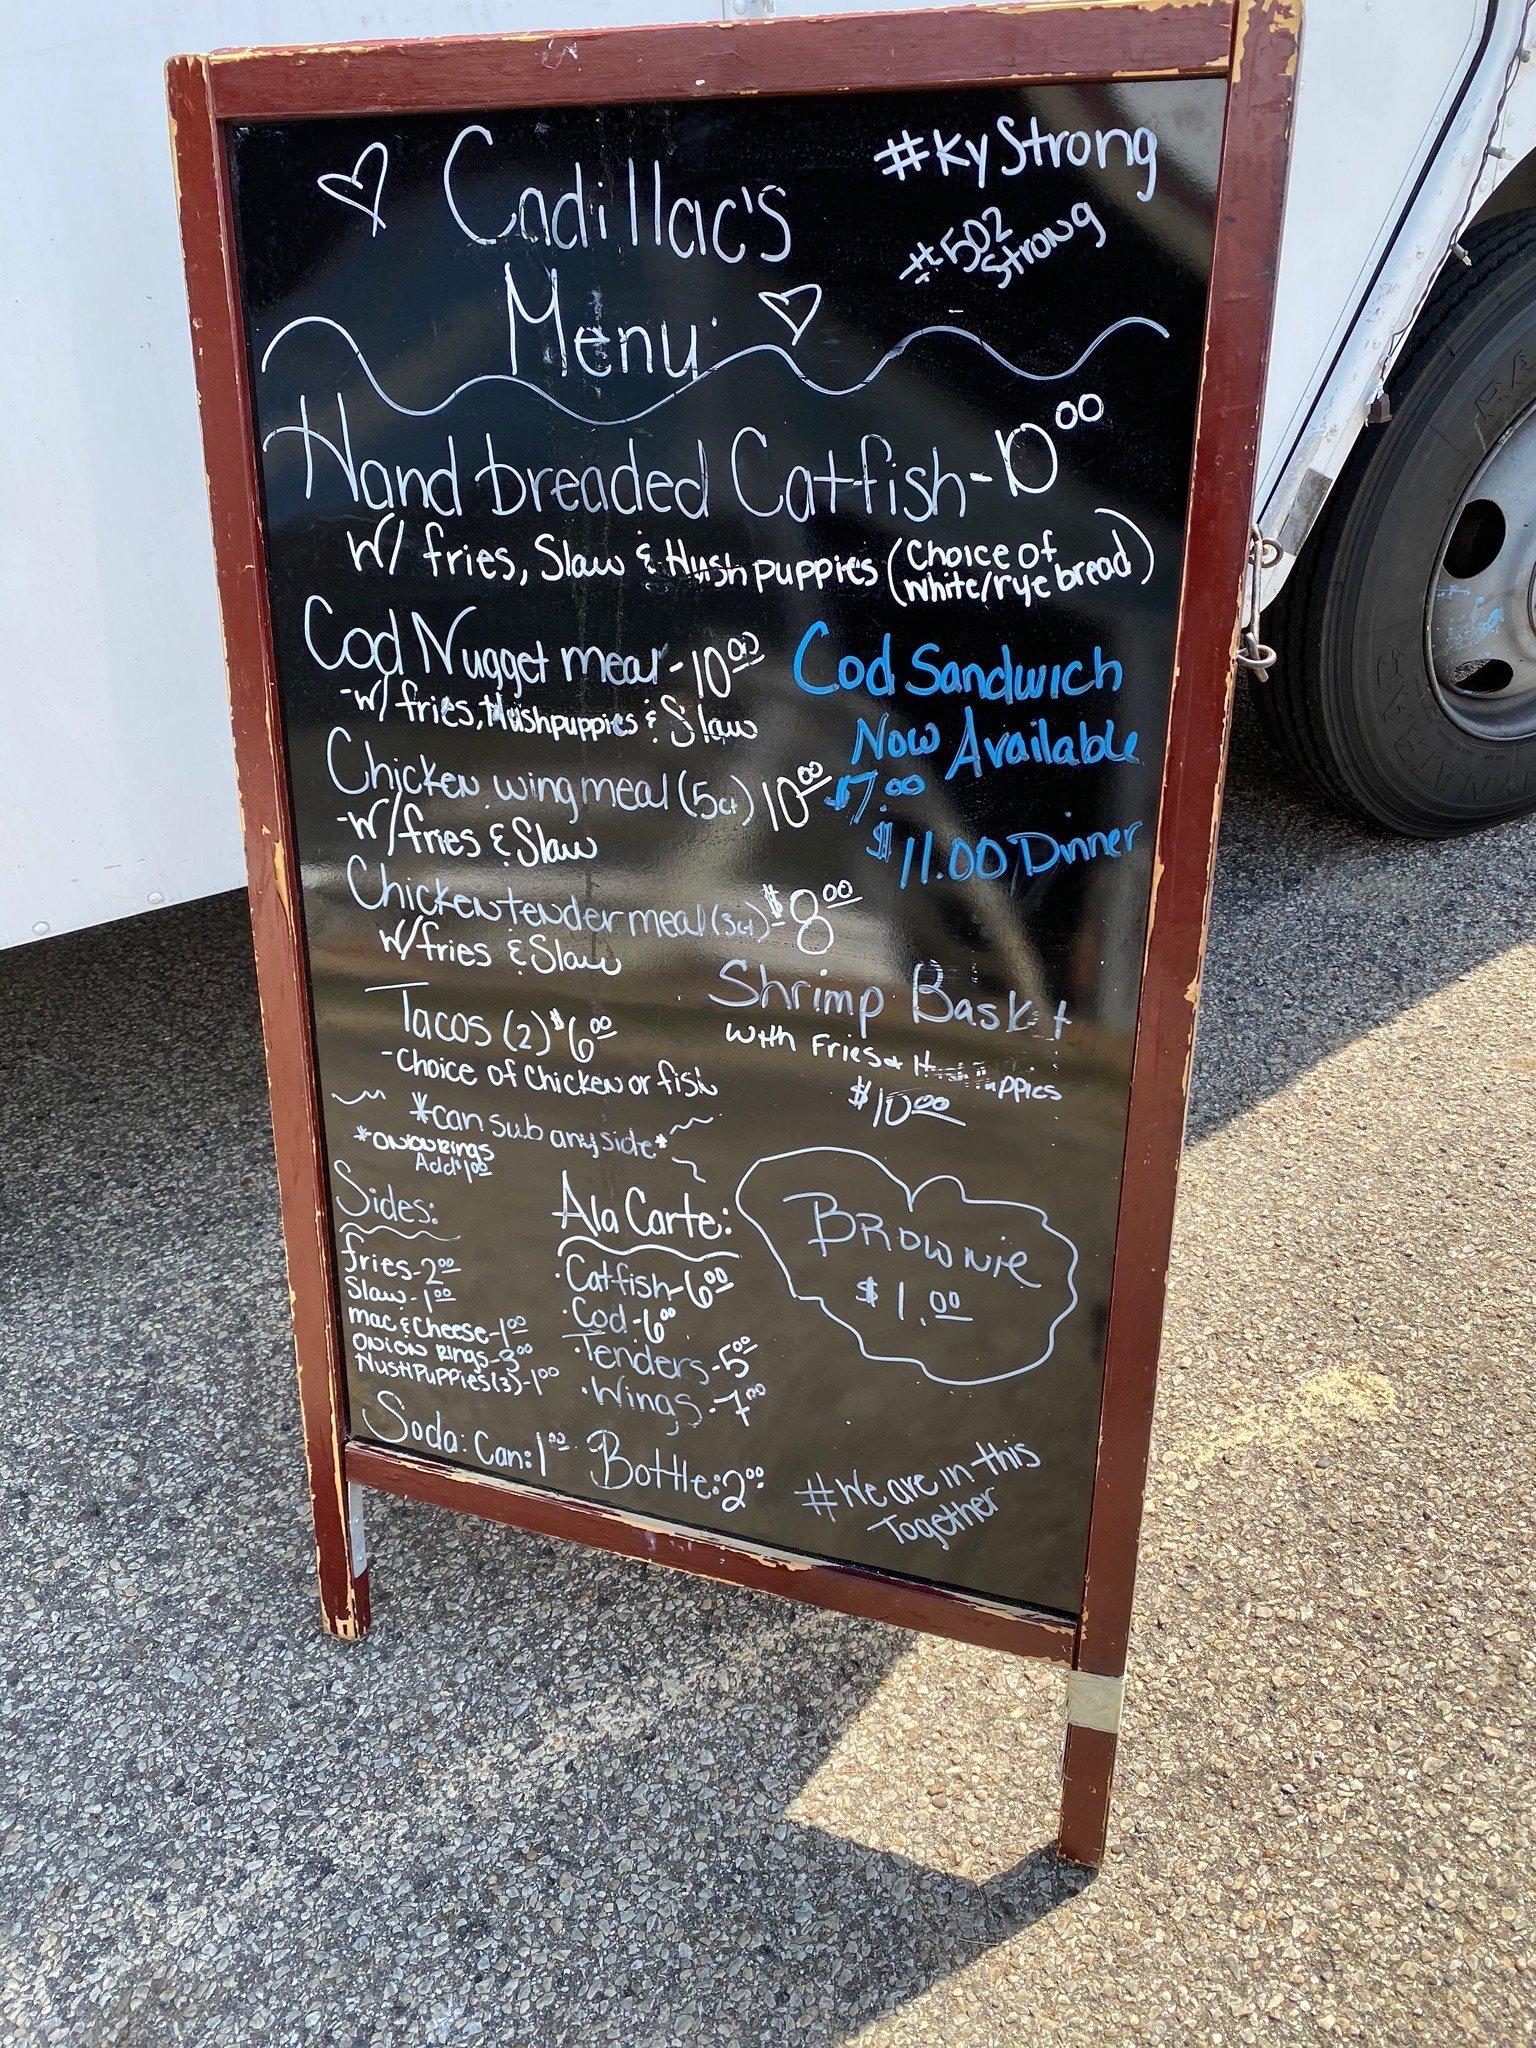 Cadillac's
Menu
#KyStrong
#502
Strong
Hand breaded Catfish-10.00
w/ fries, Slaw & Hushpuppies (Choice of
white/rye bread)
Cod Nugget meal-10.00
-w/ fries, Hushpuppies & Slaw
Cod Sandwich
Now Available
$7.00
$11.00 Dinner
Chicken wing meal (5ct) 10.00
-w/fries & Slaw
Chicken tender meal (3ct)-$8.00
w/fries & Slaw
Shrimp Basket
with Fries & Hush Puppies
$10.00
Tacos (2) $6.00
-Choice of Chicken or fish
*can sub any side*
*onion Rings
Add $1.00
Sides:
fries-2.00
Slaw-1.00
mac & Cheese-1.00
onion Rings-3.00
HushPuppies(3)-1.00
Ala Carte:
·Catfish-6.00
·Cod-6.00
·Tenders-5.00
·Wings-7.00
BROWNIE
$1.00
Soda: Can:1.00 Bottle:2.00
#We are in this
Together